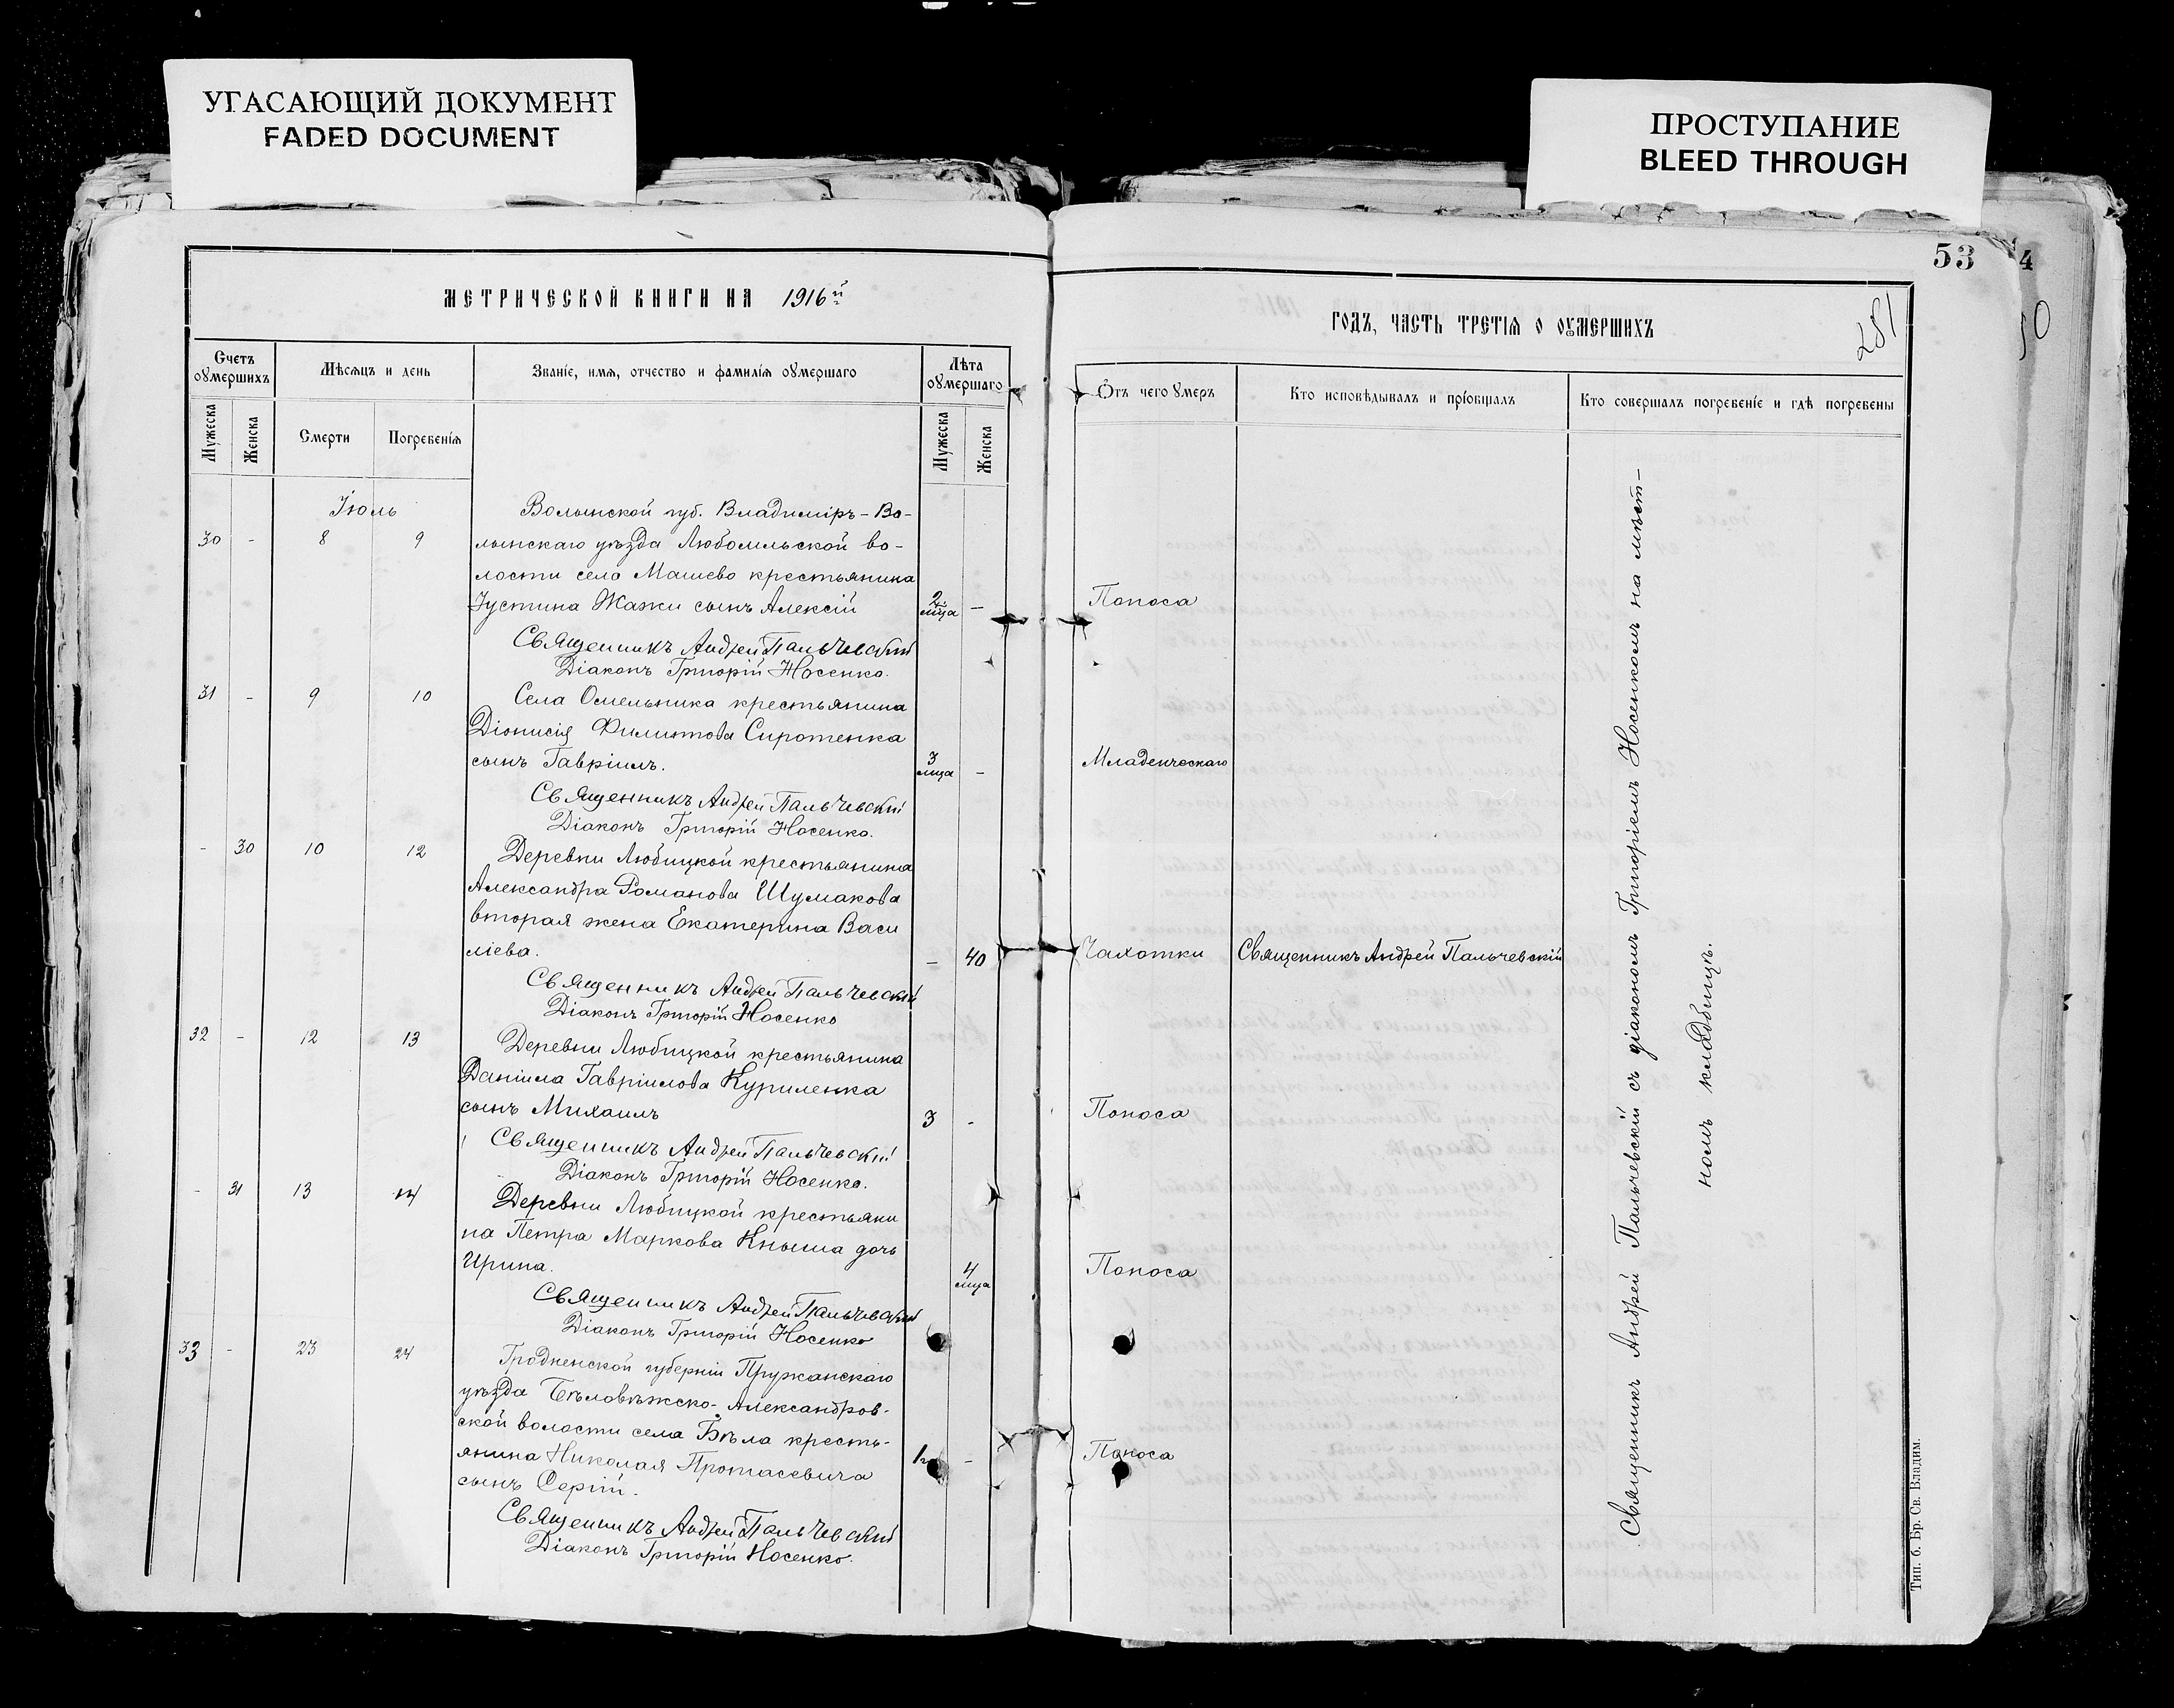 УГАСАЮЩИЙ ДОКУМЕНТ
FADED DOCUMENT
ПРОСТУПАНИЕ
BLEED THROUGH
53
4
50
281
МЕТРИЧЕСКОЙ КНИГИ НА 1916й
Счетъ оумершихъ
Мѣсяцъ и день
Званіе, имя, отчество и фамилія оумершаго
Лѣта оумершаго
Мужеска
Женска
Смерти
Погребенія
Мужеска
Женска
ГОДЪ, ЧАСТЬ ТРЕТІЯ О ОУМЕРШИХЪ
Отъ чего умеръ
Кто исповѣдывалъ и пріобщалъ
Кто совершалъ погребеніе и гдѣ погребены
Іюль
Волынской губ. Владиміръ-Во-
30 - 8 9 лынскаго уѣзда Любомльской во-
лости села Машево крестьянина
Іустина Жажи сынъ Алексій 2 мца - Поноса
Священникъ Андрей Пальчевскій
Діаконъ Григорій Носенко.
31 - 9 10 Села Омельника крестьянина
Діонисія Филиппова Сиротенка
сынъ Гавріилъ. 3 мца - Младенческаго
Священникъ Андрей Пальчевскій
Діаконъ Григорій Носенко.
- 30 10 12 Деревни Любицкой крестьянина
Александра Романова Шумакова
вторая жена Екатерина Васи
ліева. - 40 Чахотки Священникъ Андрей Пальчевскій
Священникъ Андрей Пальчевскій
Діаконъ Григорій Носенко
32 - 12 13 Деревни Любицкой крестьянина
Даніила Гавріилова Куриленка
сынъ Михаилъ 3 - Поноса
Священникъ Андрей Пальчевскій
Діаконъ Григорій Носенко.
- 31 13 14 Деревни Любицкой крестьяни
на Петра Маркова Кныша дочь
Ирина. 4 мца Поноса
Священникъ Андрей Пальчевскій
Діаконъ Григорій Носенко
33 - 23 24 Гродненской губерніи Пружанскаго
уѣзда Бѣловѣжско-Александров-
ской волости села Бѣла кресть-
янина Николая Протасевича 1 - Поноса
сынъ Сергій.
Священникъ Андрей Пальчевскій
Діаконъ Григорій Носенко.
Священникъ Андрей Пальчевскій съ діакономъ Григоріемъ Носенкомъ на мѣст-
номъ кладбищѣ.
Тип. б. Бр. Св. Владим.